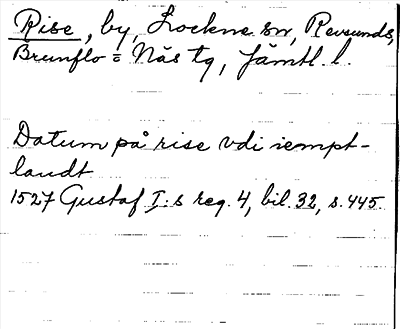 Rise, by, Lockne sn, Revsunds,
Brunflo = Näs tg, Jämtl. l.
Datum på rise vdi iempt-
landt
1527 Gustaf I:s reg. 4, bil. 32, s. 445